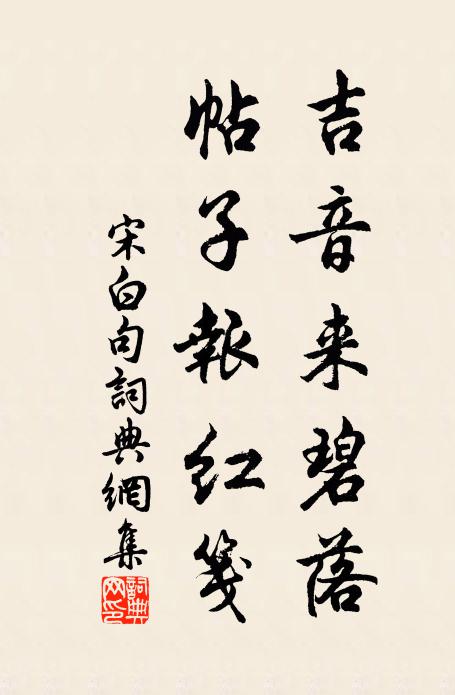 吉音来碧落
帖子報红箋
宋白句詞典網集
詞典网印